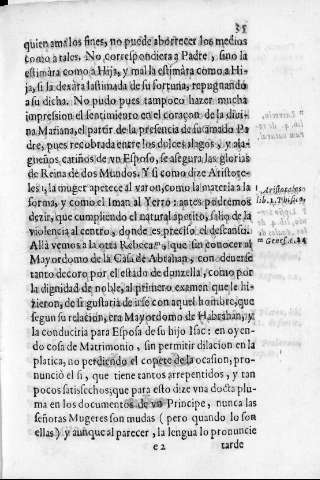 35
quien ama los fines, no puede aborrecer los medios
como a tales. No correspondiera a Padre, sino la
estimàra como a Hija, y mal la estimàra como a Hi-
ja, si la dexàra lastimada de su fortuna, repugnando
a su dicha. No pudo pues tampoco hazer mucha
impression el sentimiento en el coraçon de la divi-
na Mariana, el partir de la presencia de su amado Pa
dre, pues recobrada entre los dolces alagos, y ala-
gueños cariños de vn Esposo, se asegura las glorias
de Reina de dos Mundos. Y si como dize Aristote-
les, la muger apetece al varon, como la materia a la
forma, y como el Iman al Yerro: antes podremos
dezir, que cumpliendo el natural apetito, salio de la
violencia al centro, donde es preciso el descanso.
Allà vemos a la otra Rebecca m, que sin conocer al
Mayordomo de la Casa de Abrahan, con deuerse
tanto decoro por el estado de donzella, como por
la dignidad de noble, al primero examen que le hi-
zieron, de si gustaria de irse con aquel hombre, que
segun su relacion, era Mayordomo de Habrahan, y
la conduciria para Esposa de su hijo Isac: en oyen-
do cosa de Matrimonio, sin permitir dilacion en la
platica, no perdiendo el copete de la ocasion, pro-
nunciò el si, que tiene tantos arrepentidos, y tan
pocos satisfechos; que para esto dize vna docta plu-
ma en los documentos de vn Principe, nunca las
señoras Mugeres son mudas (pero quando lo son
ellas) y aunque al parecer, la lengua lo pronuncie
e 2 tarde
l Aristoteles
lib. 1. Phisic.
m Genes. c. 24